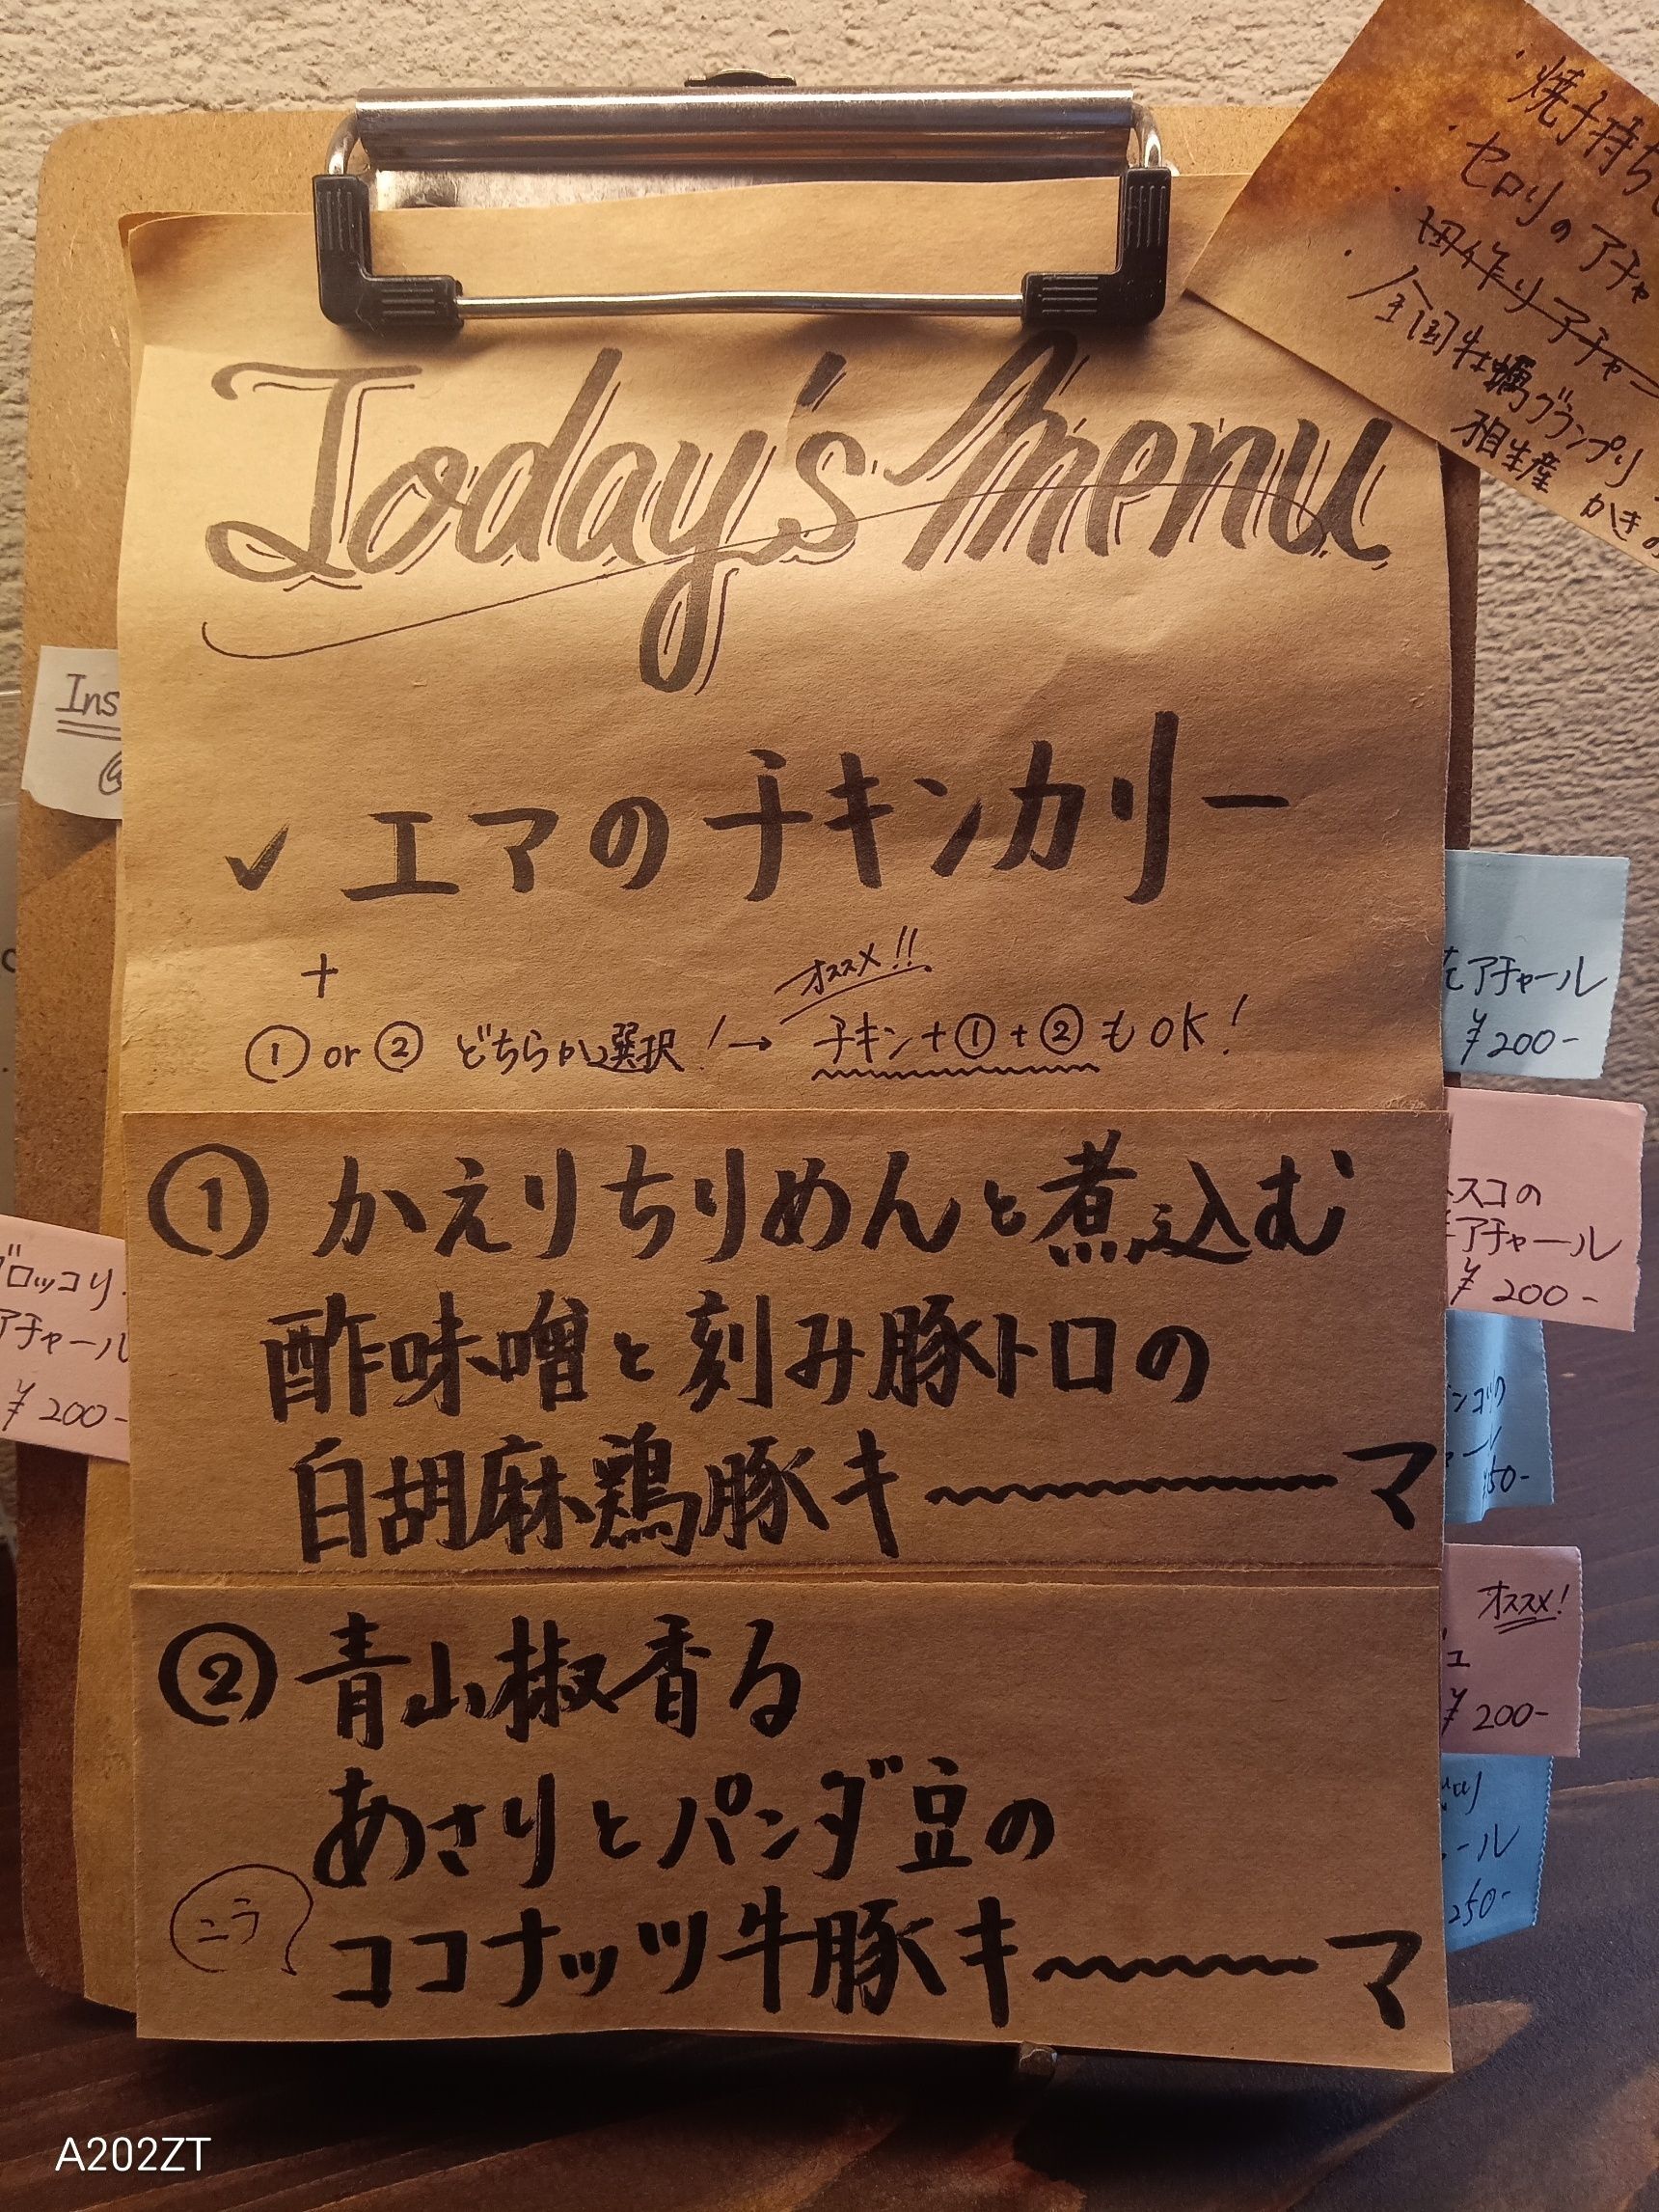 ・焼子持ち
・セロリのアチャ
・切作りアチャー
・全国牡蠣グランプリ
相生産 かきの
Today's Menu
Ins
@
✓ エマのチキンカリー
+
オススメ!!
① or ② どちらか選択!→ チキン+①+②もOK!
アチャール
¥200-
① かえりちりめんと煮込む
酢味噌と刻み豚トロの
白胡麻鶏豚キ〜〜〜マ
スコの
アチャール
¥200-
ブロッコリ
アチャール
¥200-
50-
② 青山椒香る
あさりとパンダ豆の
ニラ
ココナッツ牛豚キ〜〜〜マ
オススメ!
¥200-
ール
250-
A202ZT